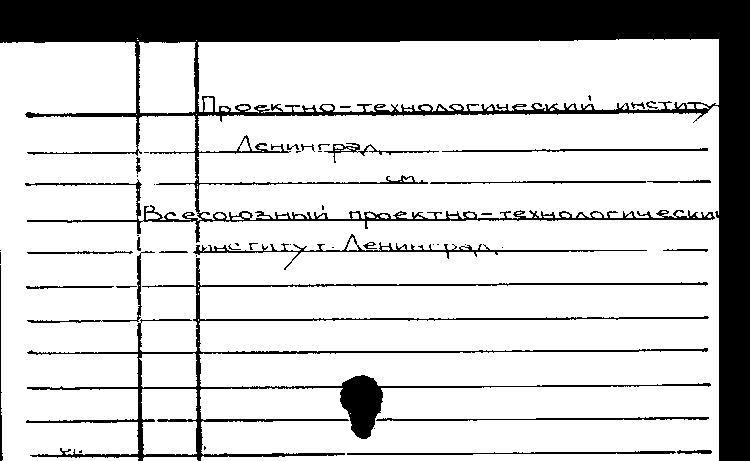 Проектно-технологический институ
Ленинград.
см.
Всесоюзный проектно-технологический
институт. Ленинград.